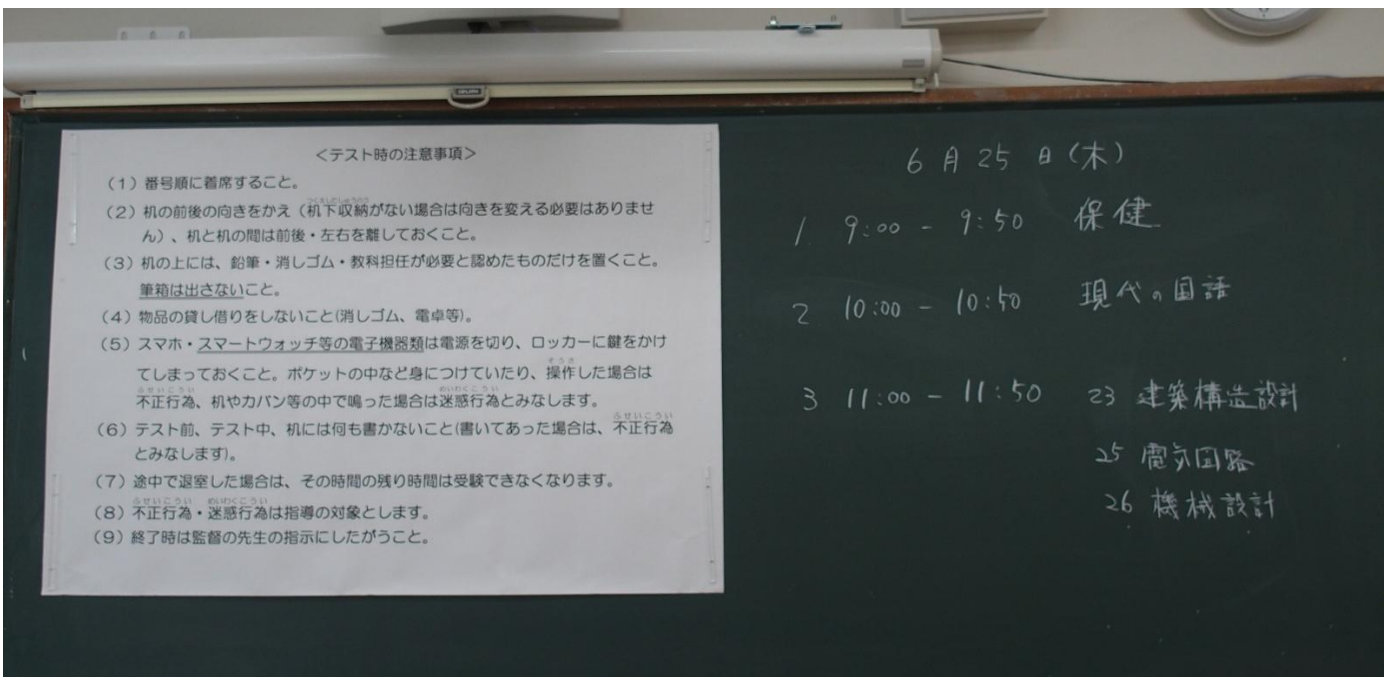 <テスト時の注意事項>
(1)番号順に着席すること。
(2)机の前後の向きをかえ(机下収納がない場合は向きを変える必要はありませ
ん)、机と机の間は前後・左右を離しておくこと。
(3)机の上には、鉛筆・消しゴム・教科担任が必要と認めたものだけを置くこと。
筆箱は出さないこと。
(4)物品の貸し借りをしないこと(消しゴム、電卓等)。
(5)スマホ・スマートウォッチ等の電子機器類は電源を切り、ロッカーに鍵をかけ
てしまっておくこと。ポケットの中など身につけていたり、操作した場合は
不正行為、机やカバン等の中で鳴った場合は迷惑行為とみなします。
(6)テスト前、テスト中、机には何も書かないこと(書いてあった場合は、不正行為
とみなします)。
(7)途中で退室した場合は、その時間の残り時間は受験できなくなります。
(8)不正行為・迷惑行為は指導の対象とします。
(9)終了時は監督の先生の指示にしたがうこと。
6月25日(木)
1 9:00 - 9:50 保健
2 10:00 - 10:50 現代の国語
3 11:00 - 11:50 23 建築構造設計
25 電気回路
26 機械設計